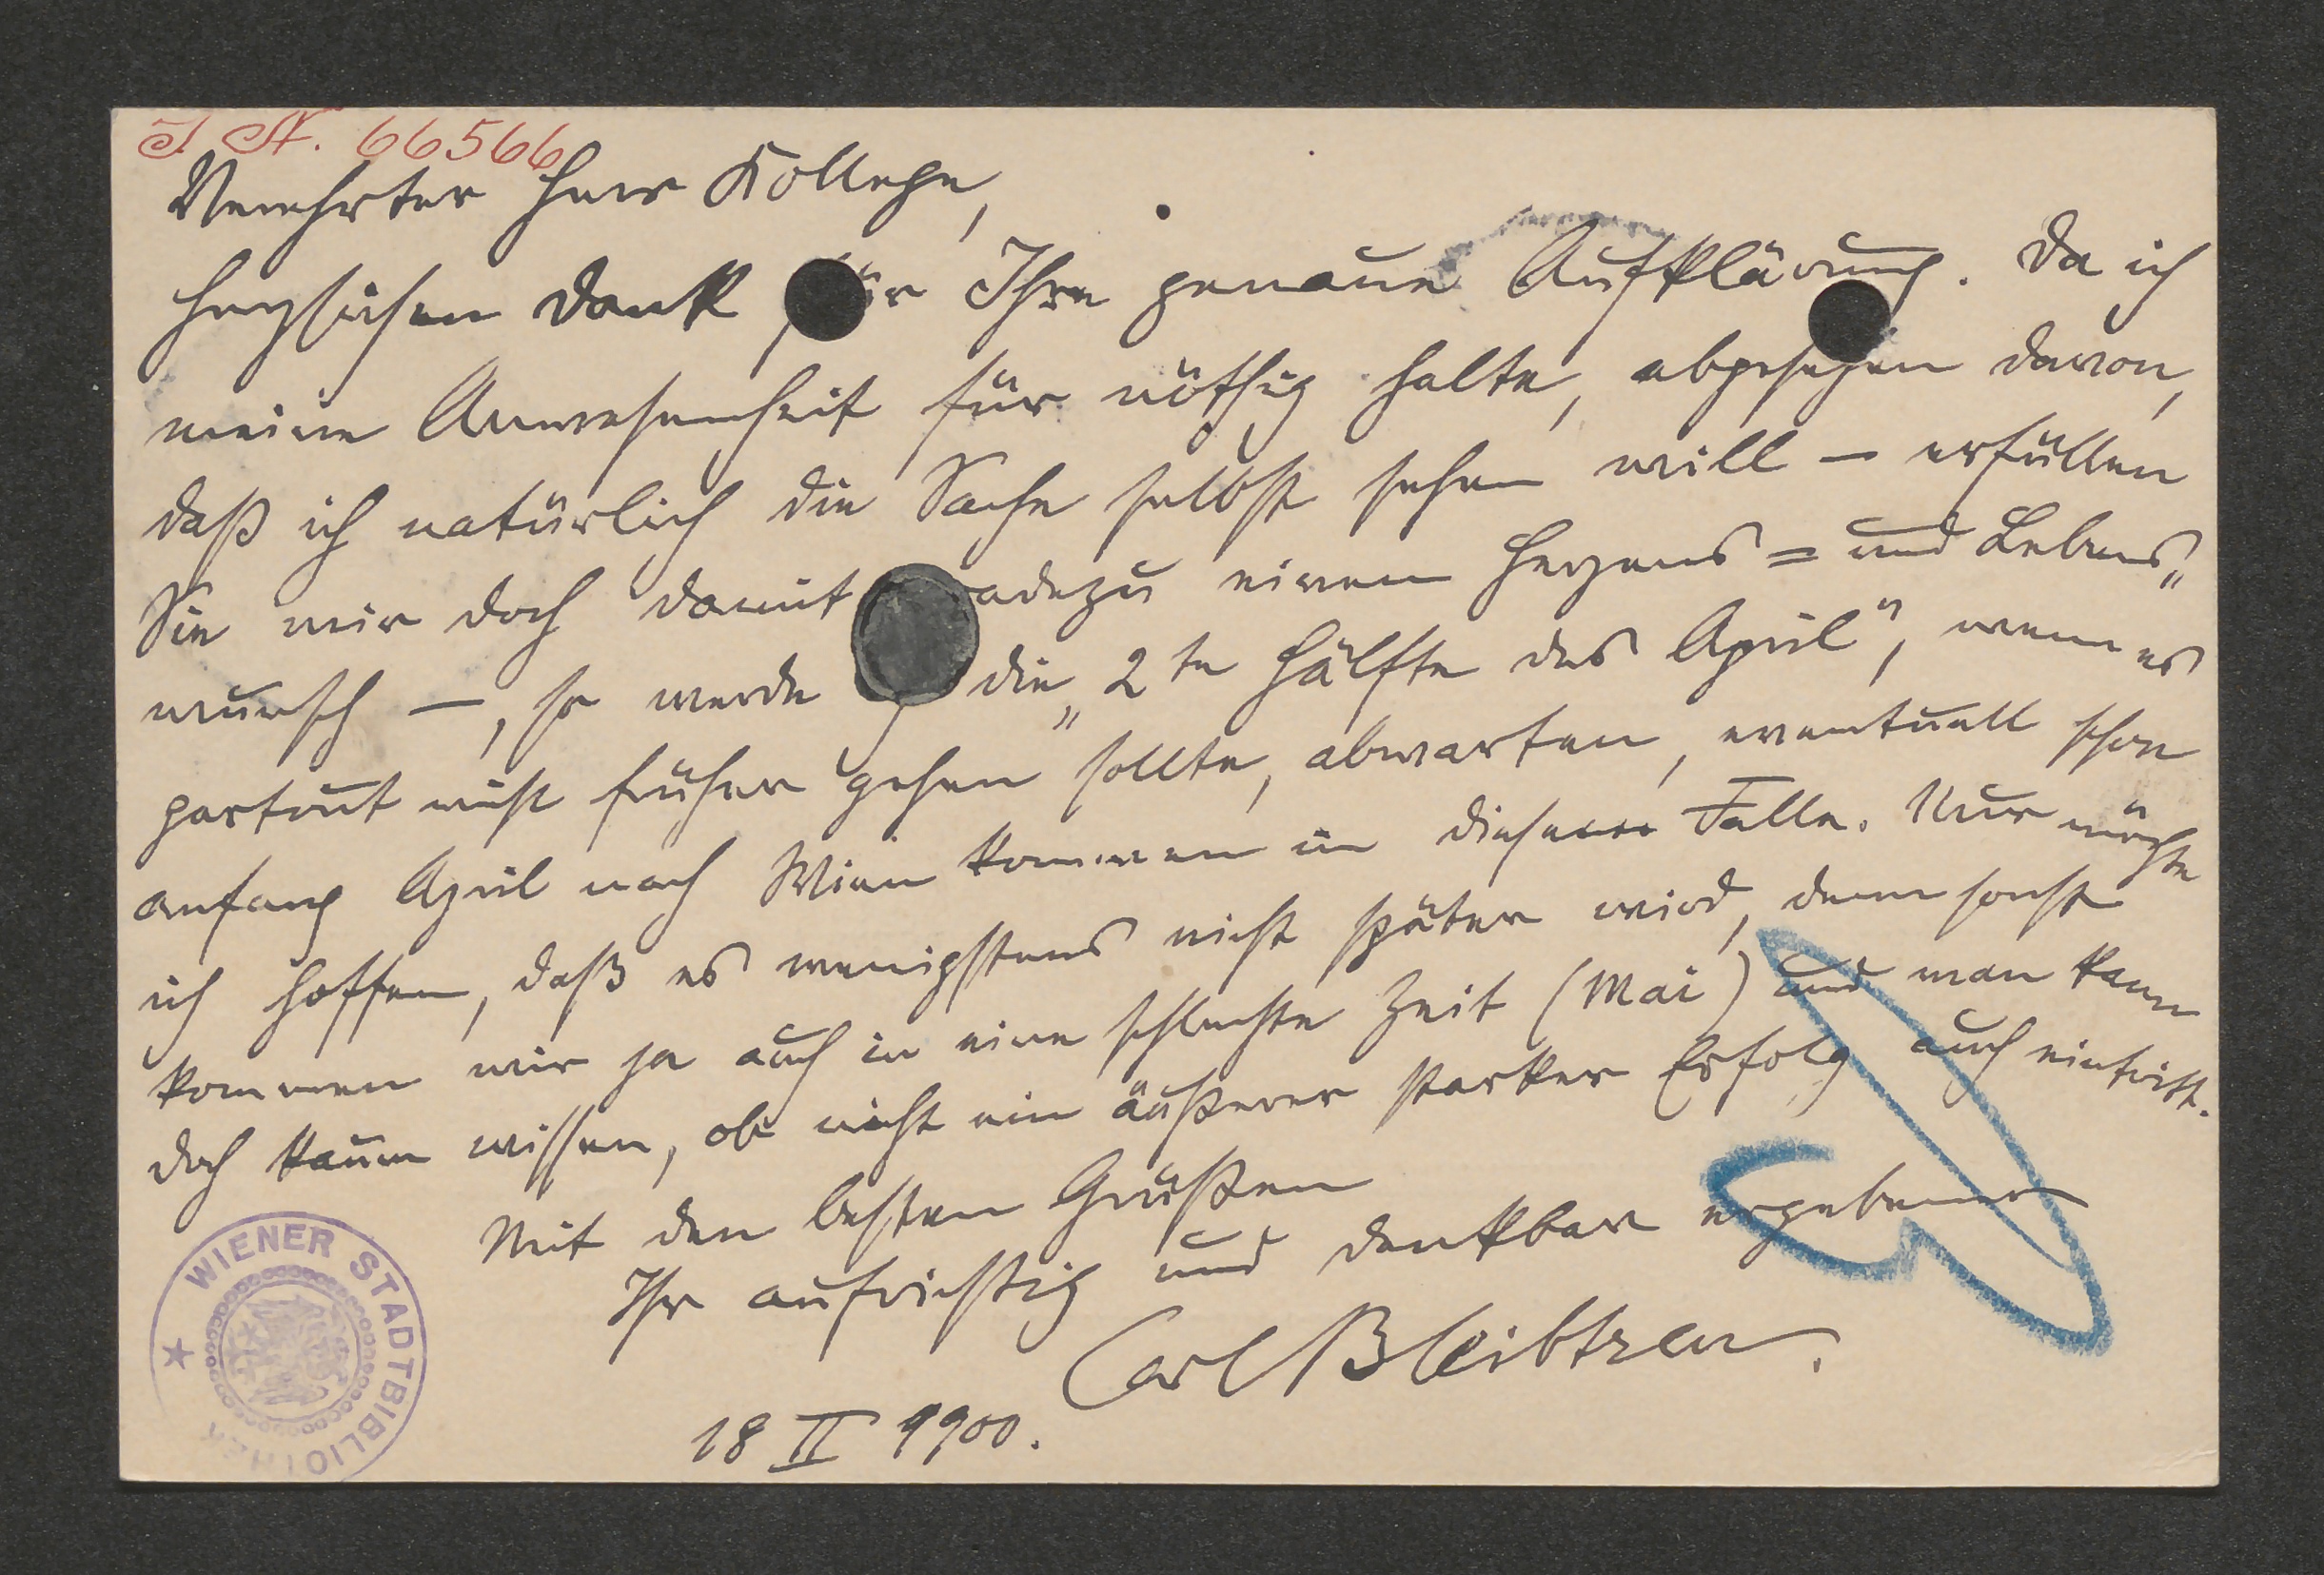 I. N. 66566
Verehrter Herr Kollege,
herzlichen Dank für Ihre genaue Aufklärung. Da ich
meine Anwesenheit für nöthig halte, abgesehen davon,
daß ich natürlich die Sache selbst sehen will — erfüllen
Sie mir doch damit adezu einen Herzens = und Lebens„
wunsch —, so werde die „2te Hälfte des April“, wenn es
partout nicht früher gehen sollte, abwarten, eventuell schon
anfang April nach Wien kommen in diesem Falle. Nur möchte
ich hoffen, daß es wenigstens nicht später wird, denn sonst
kommen wir ja auch in eine schlechte Zeit (Mai) und man kann
doch kaum wissen, ob nicht ein äußerer starker Erfolg auch eintritt.
Mit den besten Grüßen
Ihr aufrichtig und dankbar ergebener
Carl Bleibtreu.
18 II 1900.
WIENER STADTBIBLIOTHEK